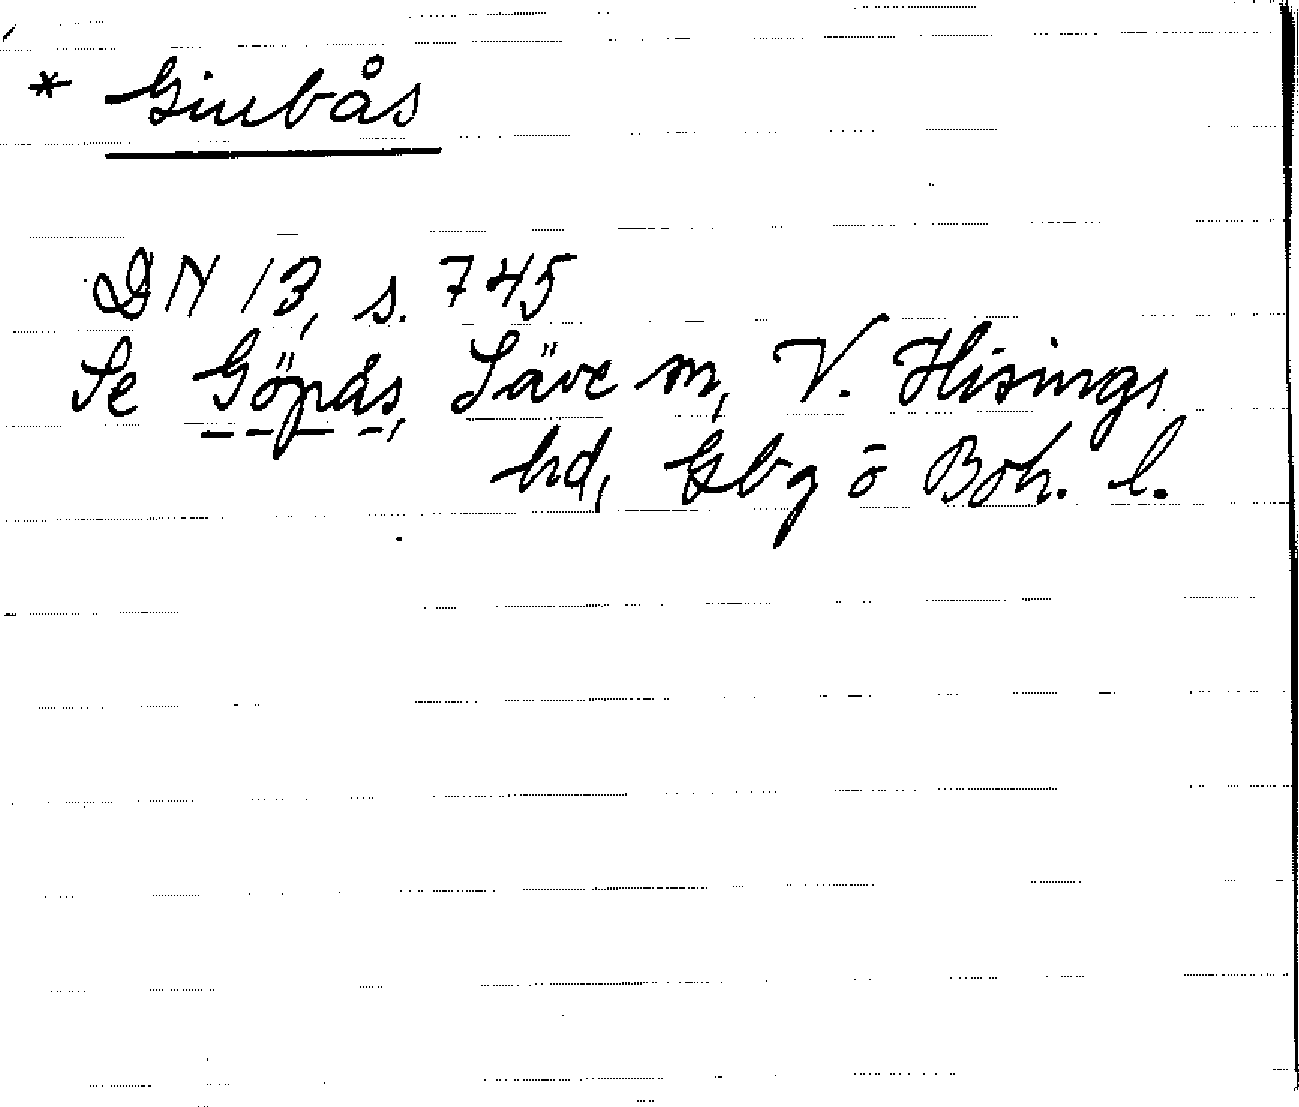 * Giubås
DN 13, s. 745
Se Göpås, Säve sn, V. Hisings
hd, Gbg o Boh. l.